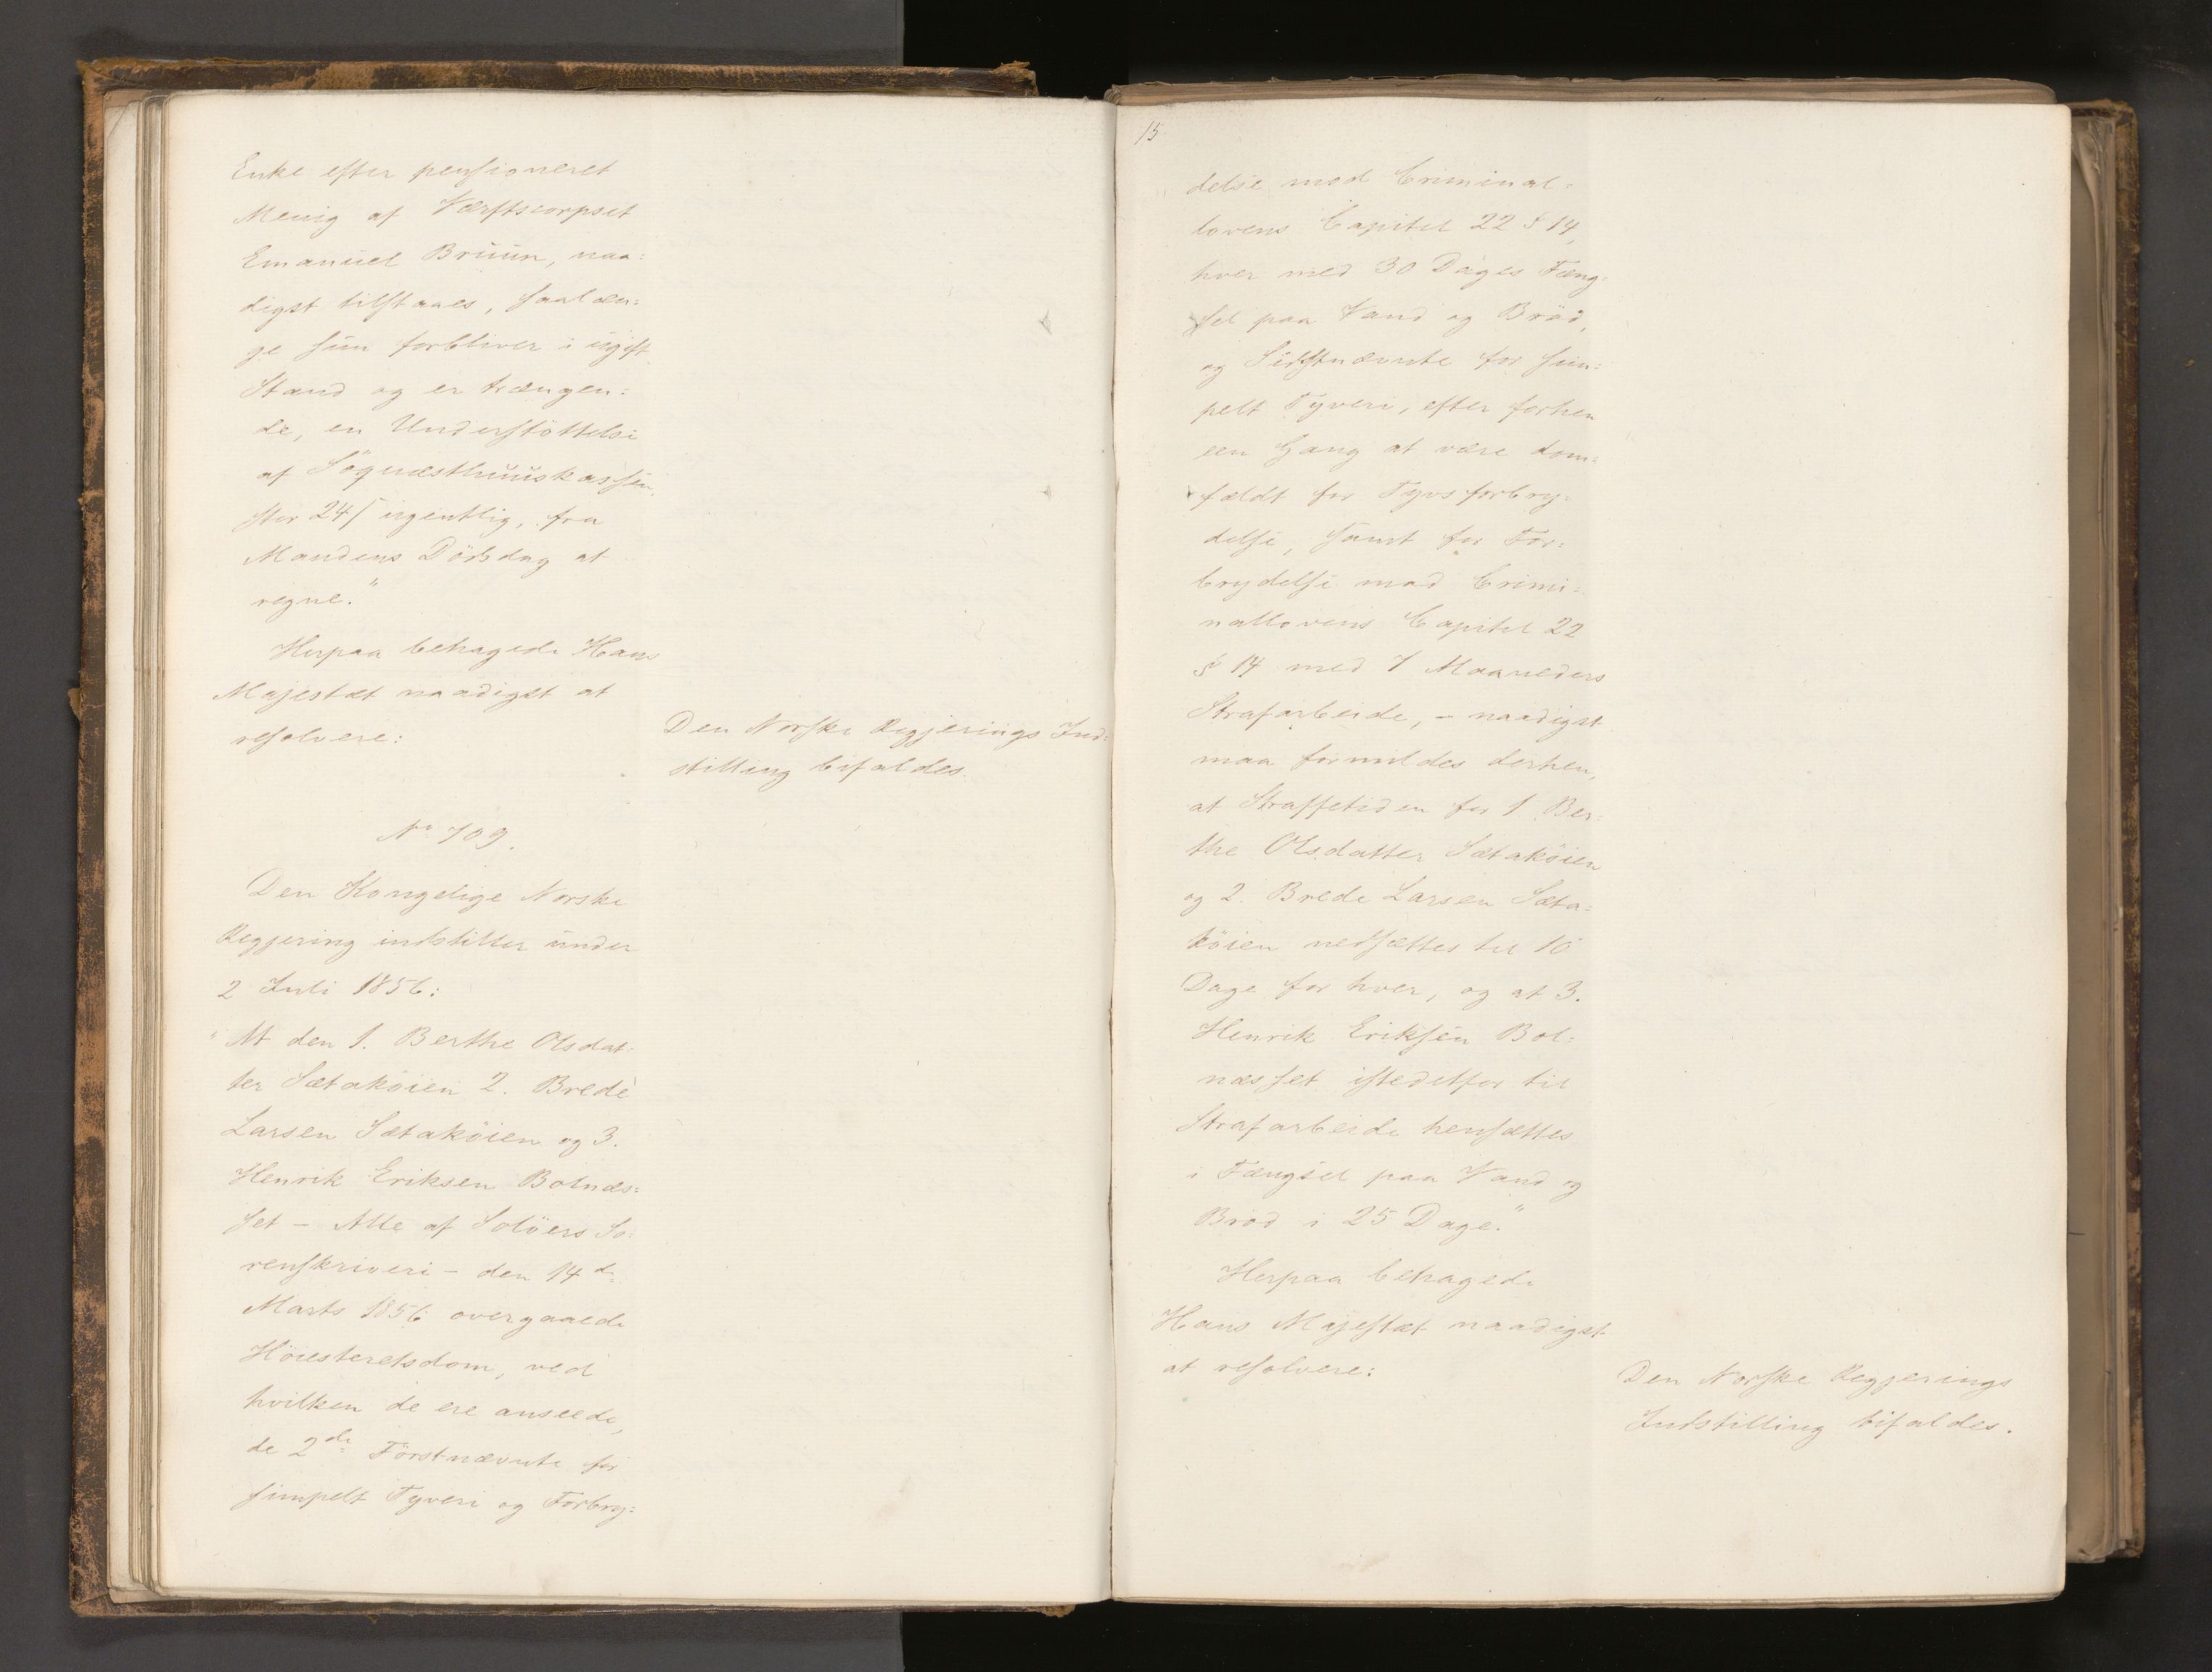 Enke efter pensioneret
Menig af Værftscorpset
Emanuel Bruun, naa=
digst tilstaaes, saalæn=
ge hun forbliver i ugift
Stand og er trængen=
de, en Understöttelse
af Söqvæsthuuskassen,
stor 24 ß ugentlig, fra
Mandens Dödsdag at
regne."
Herpaa behagede Hans
Majestæt naadigst at
resolvere:
Den Norske Regjerings Ind=
stilling bifaldes.
No 709.
Den Kongelige Norske
Regjering indstiller under
2 Juli 1856:
"At den 1. Berthe Olsdat=
ter Sætaköien 2. Brede
Larsen Sætaköien og 3.
Henrik Eriksen Bolnæs=
set – Alle af Solöers So=
renskriveri – den 14de
Marts 1856 overgaaede
Höiesteretsdom, ved
hvilken de ere anseede,
de 2de Förstnævnte for
simpelt Tyveri og Forbry=
15
delse mod Criminal=
lovens Capitel 22 § 14,
hver med 30 Dages Fæng=
sel paa Vand og Bröd,
og Sidstnævnte for sim=
pelt Tyveri, efter forhen
een Gang at være dom=
fældt for Tyvsforbry=
delse, samt for For=
brydelse mod Crimi=
nallovens Capitel 22
§ 14 med 7 Maaneders
Strafarbeide, – naadigst
maa formildes derhen,
at Straffetiden for 1. Ber=
the Olsdatter Sætaköien
og 2. Brede Larsen Sæta=
köien nedsættes til 10
Dage for hver, og at 3.
Henrik Eriksen Bol=
næsset istedetfor til
Strafarbeide hensættes
i Fængsel paa Vand og
Bröd i 25 Dage."
Herpaa behagede
Hans Majestæt naadigst
at resolvere:
Den Norske Regjerings
Indstilling bifaldes.